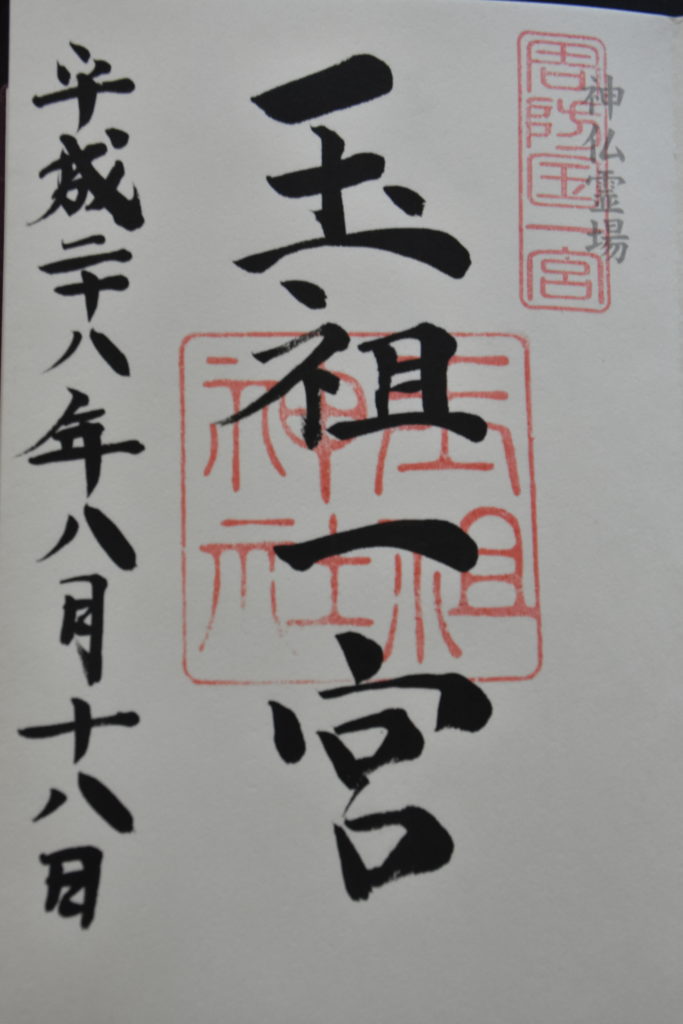 神仏霊場
周防国一宮
玉祖一宮
玉祖
神社
平成二十八年八月十八日